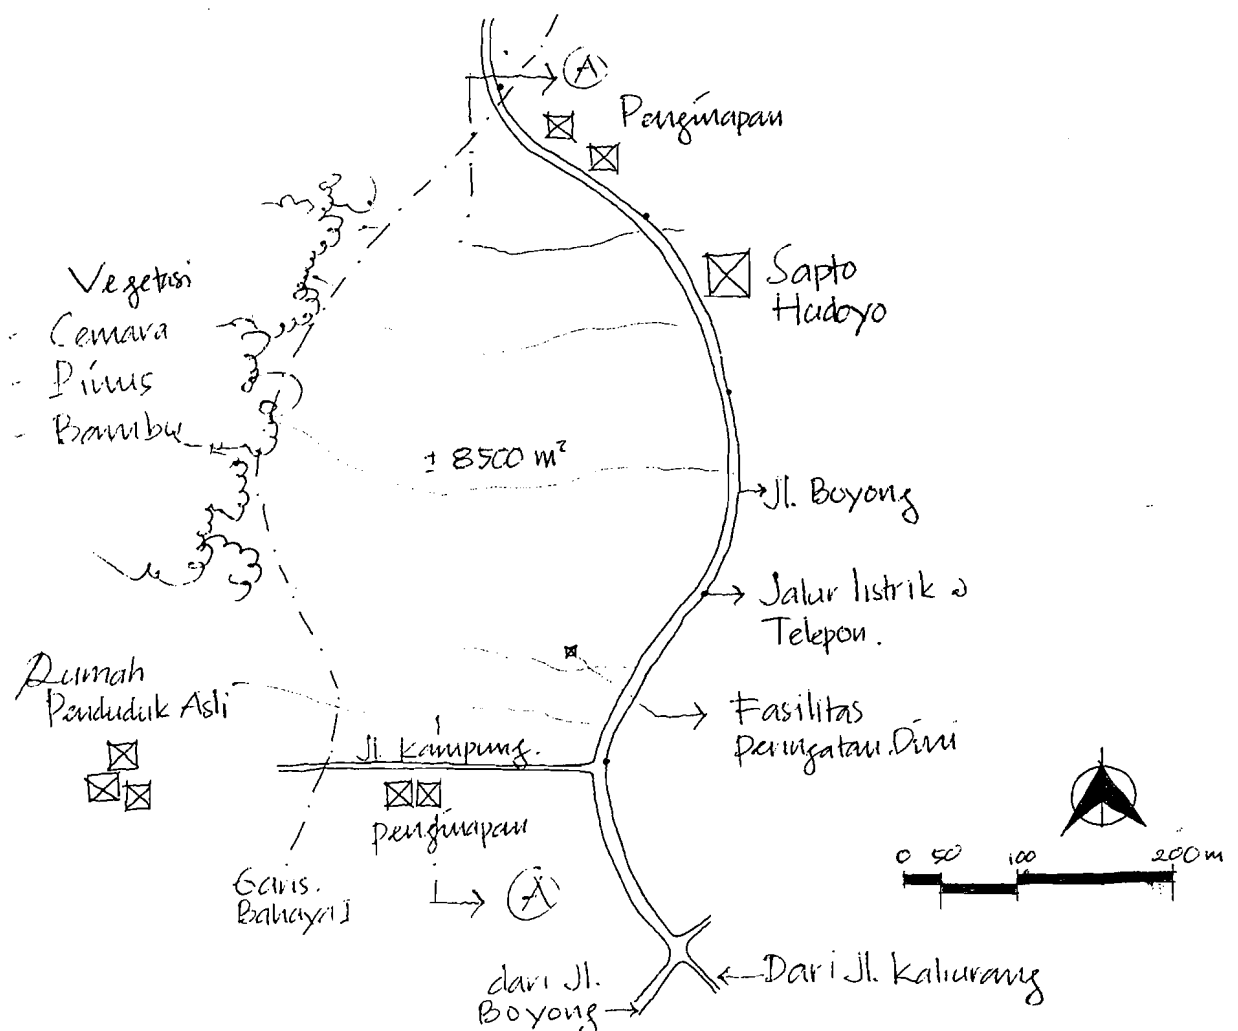 A
Penginapan
Vegetasi
- Cemara
- Pinus
- Bambu
Sapto
Hudoyo
± 8500 m²
Jl. Boyong
Jalur listrik &
Telepon.
Rumah
Penduduk Asli
Fasilitas
Peringatan Dini
Jl. Kampung.
penginapan
Garis.
Bahaya I
A
0 50 100 200 m
dari Jl.
Boyong
Dari Jl. Kaliurang